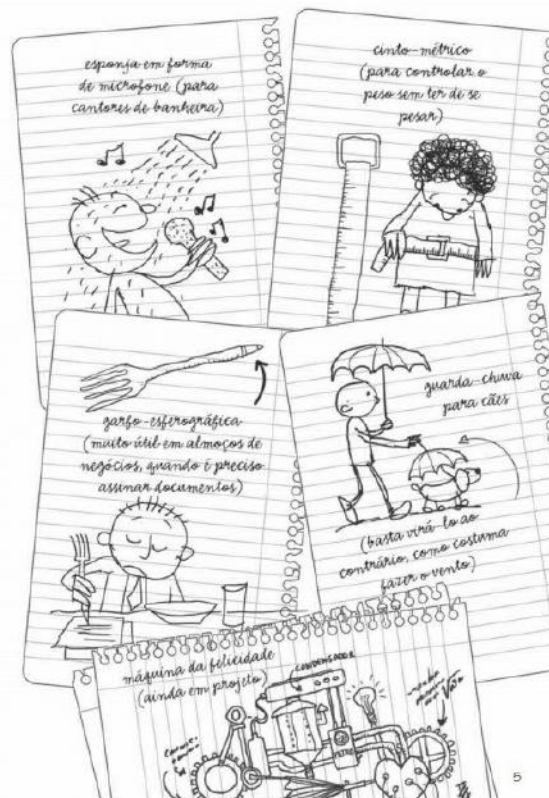 esponja em forma
de microfone (para
cantores de banheira)
cinto-métrico
(para controlar o
peso sem ter de se
pesar)
garfo-esferográfica
(muito útil em almoços de
negócios, quando é preciso
assinar documentos)
guarda-chuva
para cães
(basta virá-lo ao
contrário, como costuma
fazer o vento)
máquina da felicidade
(ainda em projeto)
CONDENSADOR
5